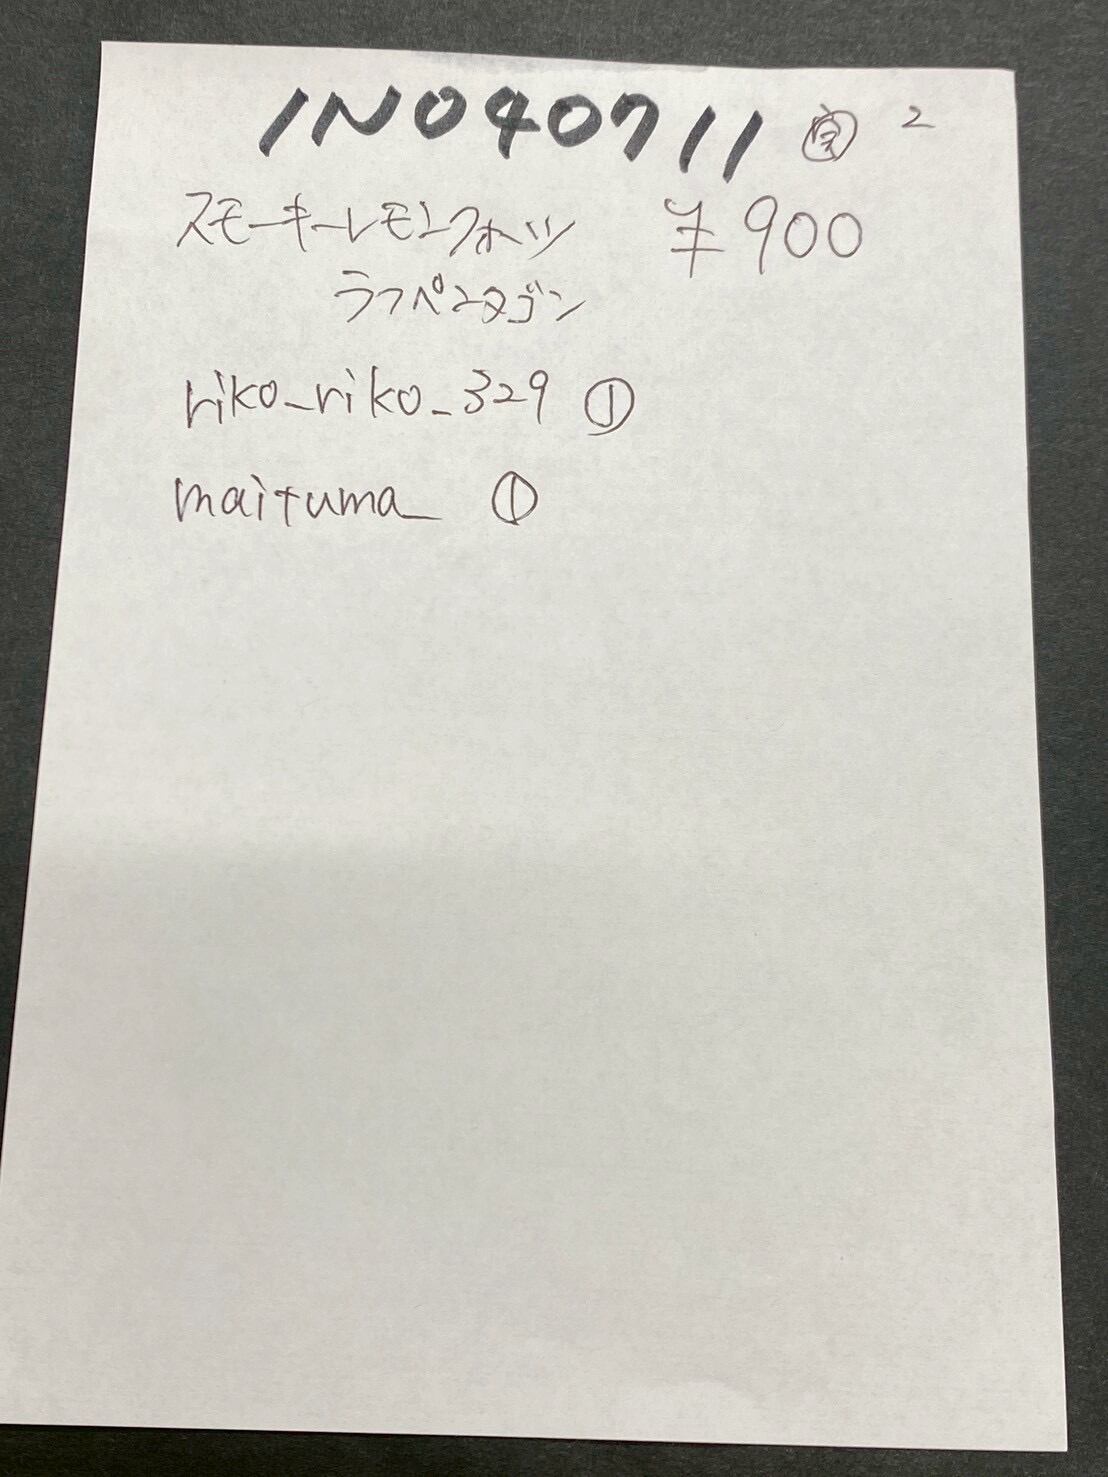 IN040711 2
スモーキーレモンクォーツ ¥900
ラフペンタゴン
riko_riko_329 ①
maituma_ ①